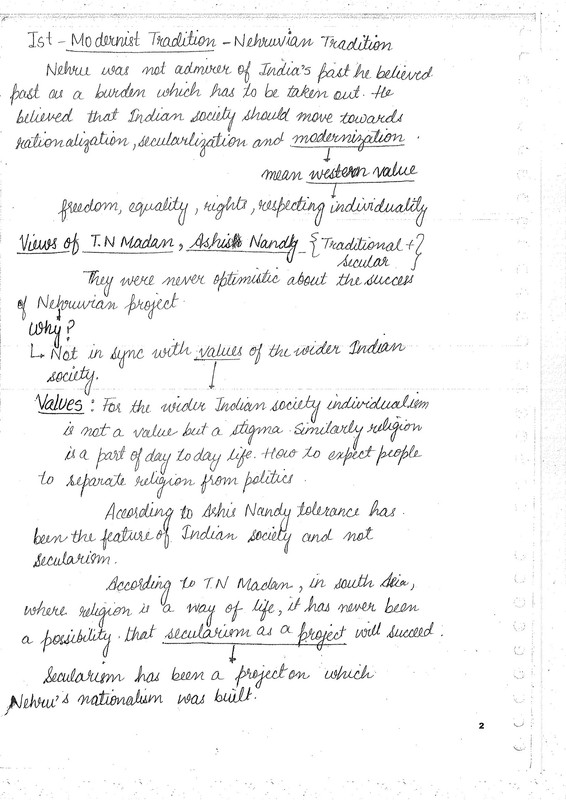 Ist - Modernist Tradition - Nehruvian Tradition
Nehru was not admirer of India's past he believed
past as a burden which has to be taken out. He
believed that Indian society should move towards
rationalization, secularlization and modernization.
mean western value
freedom, equality, rights, respecting individuality
Views of T.N Madan, Ashish Nandy {Traditional +
secular}
They were never optimistic about the success
of Nehruvian project.
Why?
↳ Not in sync with values of the wider Indian
society.
Values : For the wider Indian society individualism
is not a value but a stigma. Similarly religion
is a part of day to day life. How to expect people
to separate religion from politics.
According to Ashis Nandy tolerance has
been the feature of Indian society and not
secularism.
According to T.N Madan, in south Asia,
where religion is a way of life, it has never been
a possibility that secularism as a project will succeed.
Secularism has been a project on which
Nehru's nationalism was built.
2